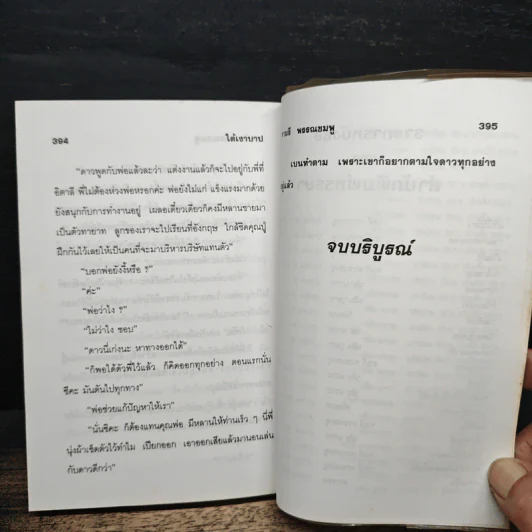 394
ใต้เงาบาป
"ดาวพูดกับพ่อแล้วละว่า แต่งงานแล้วก็จะไปอยู่กับพี่ที่
อิตาลี พี่ไม่ต้องห่วงพ่อหรอกค่ะ พ่อยังไม่แก่ แข็งแรงมากด้วย
ยังสนุกกับการทำงานอยู่ เผลอเดี๋ยวเดียวก็คงมีหลานชายมา
เป็นตัวทายาท ลูกของเราจะไปเรียนที่อังกฤษ ใกล้ชิดคุณปู่
ฝึกกันไว้เลยให้เป็นคนที่จะมาบริหารบริษัทแทนตัว"
"บอกพ่อยังงี้หรือ ?"
"ค่ะ"
"พ่อว่าไง ?"
"ไม่ว่าไง ชอบ"
"ดาวนี่เก่งนะ หาทางออกได้"
"ก็พอได้ตัวพี่ไว้แล้ว ก็คิดออกทุกอย่าง ตอนแรกนั่น
ซีคะ มันตันไปทุกทาง"
"พ่อช่วยแก้ปัญหาให้เรา"
"นั่นซิคะ ก็ต้องแทนคุณพ่อ มีหลานให้ท่านเร็ว ๆ นี้พี่
นุ่งผ้าเช็ดตัวไว้ทำไม เปียกออก เอาออกเสียแล้วมานอนเล่น
กับดาวดีกว่า"
พรรณชมพู
395
เบนทำตาม เพราะเขาก็อยากตามใจดาวทุกอย่าง
อยู่แล้ว
จบบริบูรณ์